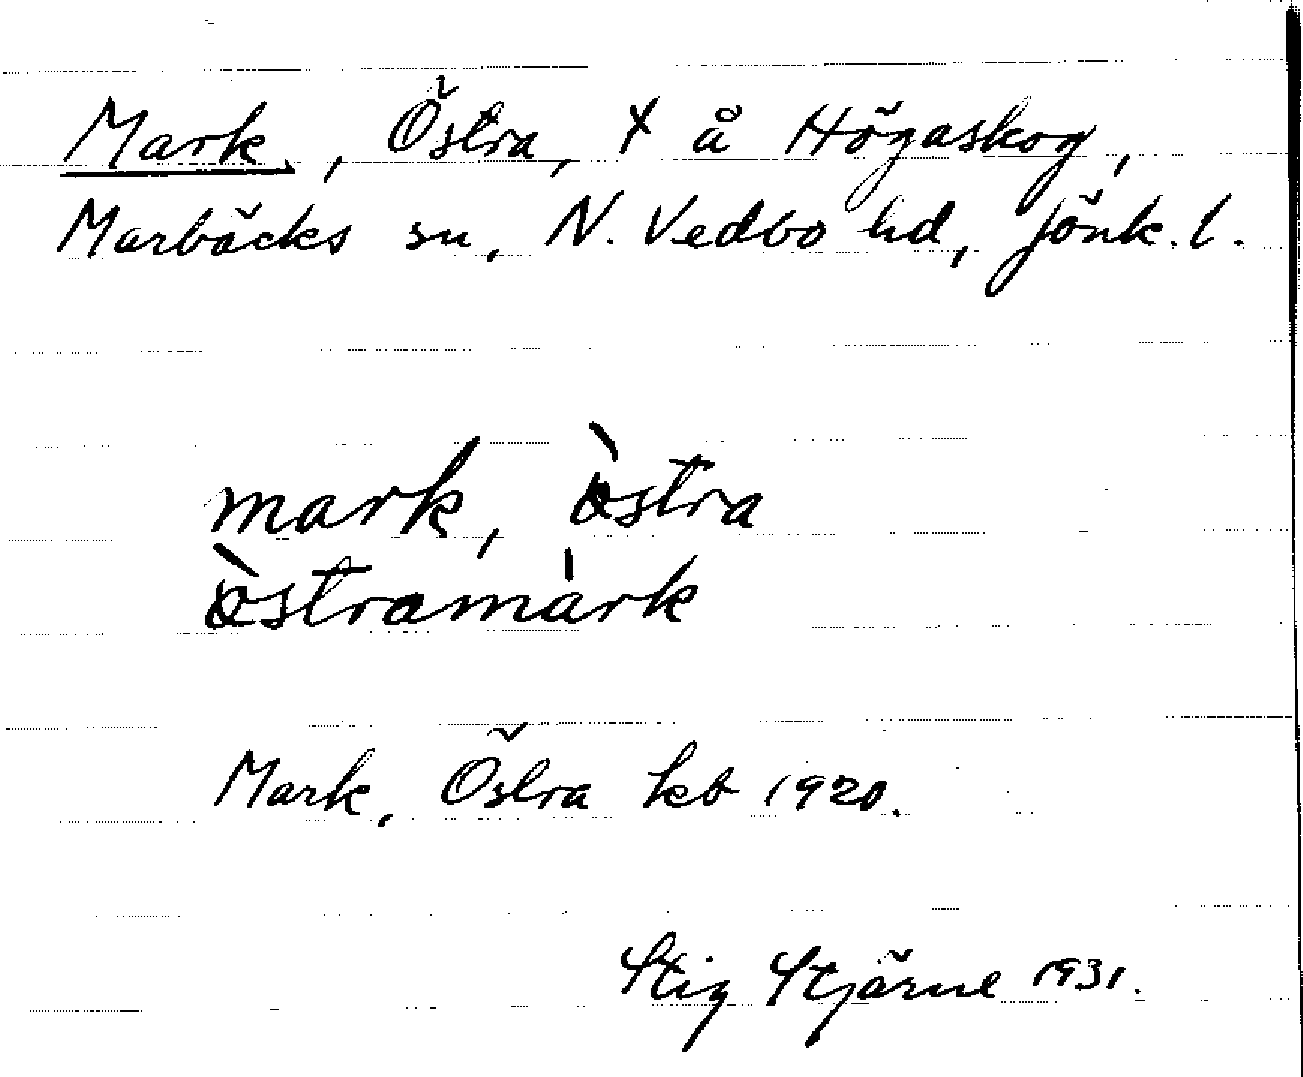 Mark, Östra, x å Högaskog,
Marbäcks sn, N. Vedbo hd, Jönk. l.
mark, òstra
òstramàrk
Mark, Östra kb 1920.
Stig Stjärne 1931.